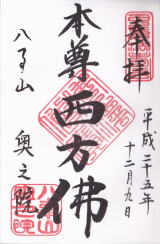 奉拝
平成二十五年
十二月九日
本尊 西方佛
八事山 奥之院